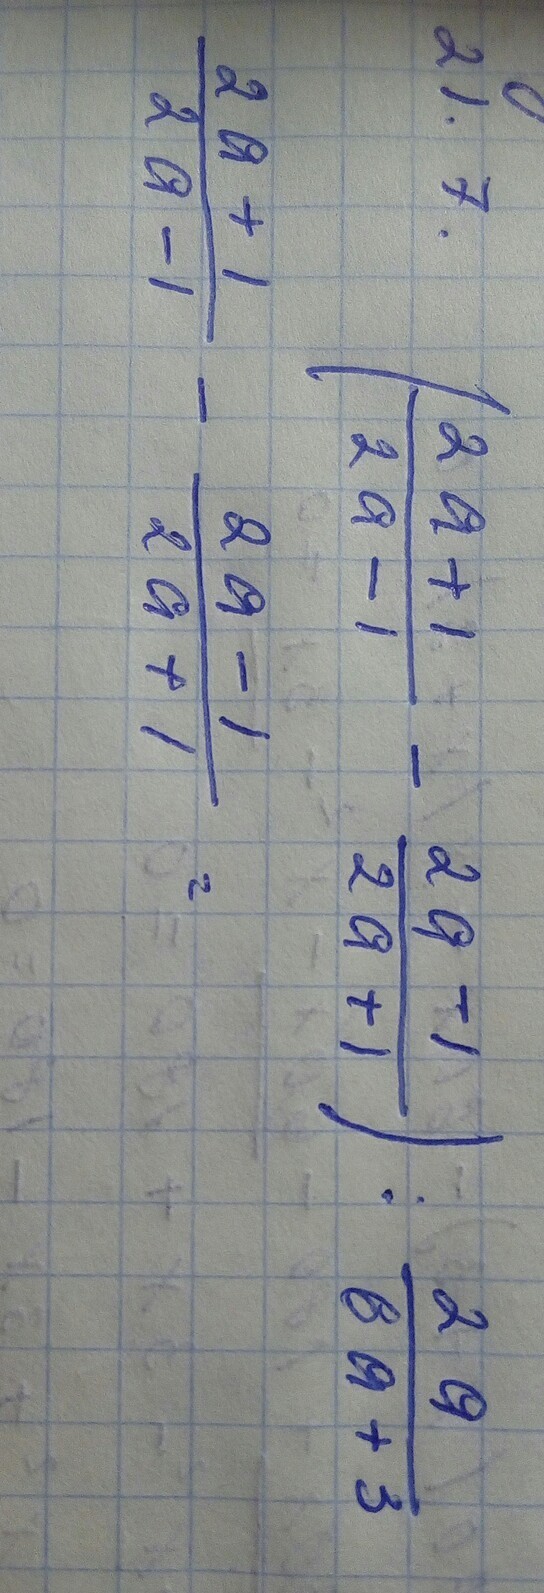 21.7.
(2a+1/2a-1 - 2a-1/2a+1) : 2a/6a+3
2a+1/2a-1 - 2a-1/2a+1 =